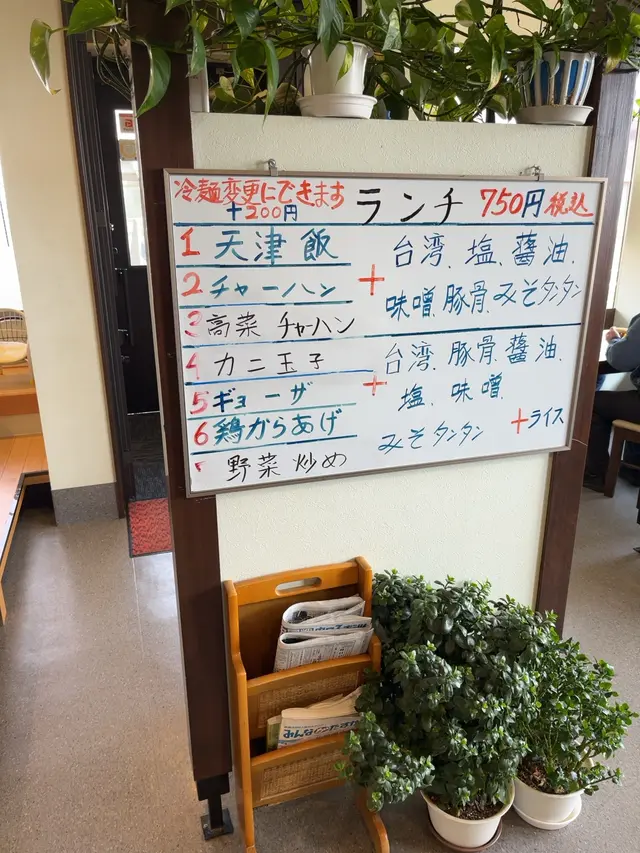 冷麺変更にできます
+200円
ランチ 750円 税込
1 天津飯
2 チャーハン
3 高菜 チャーハン
+
台湾、塩、醤油、
味噌、豚骨、みそタンタン
4 カニ玉子
5 ギョーザ
6 鶏からあげ
野菜炒め
+
台湾、豚骨、醤油、
塩、味噌、
みそタンタン +ライス
みんな